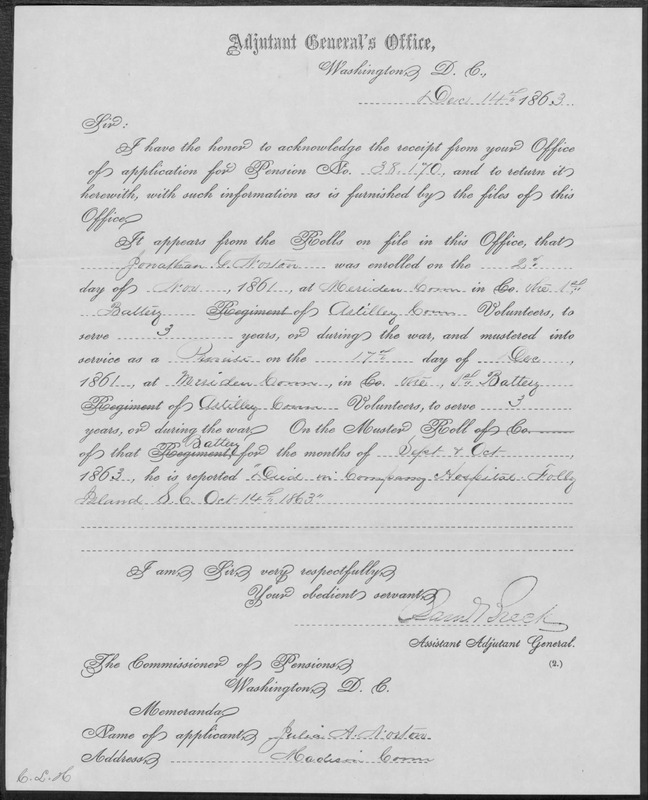 Adjutant General's Office,
Washington, D. C.,
Dec 14th 1863.
Sir:
I have the honor to acknowledge the receipt from your Office
of application for Pension No. 38.170, and to return it
herewith, with such information as is furnished by the files of this
Office.
It appears from the Rolls on file in this Office, that
Jonathan G. Norton was enrolled on the 2d
day of Nov, 1861, at Meriden Conn in Co. 1st
Battery Regiment of Artilley Conn Volunteers, to
serve 3 years, or during the war, and mustered into
service as a Private on the 17th day of Dec,
1861, at Meriden Conn, in Co. 1st Battery
Regiment of Artilley Conn Volunteers, to serve 3
years, or during the war. On the Muster Roll of Co.
of that Regiment, Battery for the months of Sept & Oct,
1863, he is reported "Died in Company Hospital Folly
Island S. C. Oct 14th 1863"
I am, Sir, very respectfully,
Your obedient servant,
Saml Breck
Assistant Adjutant General.
(2.)
The Commissioner of Pensions,
Washington, D. C.
Memoranda
Name of applicant, Julia A. Norton
Address, Madison Conn
C. L. H